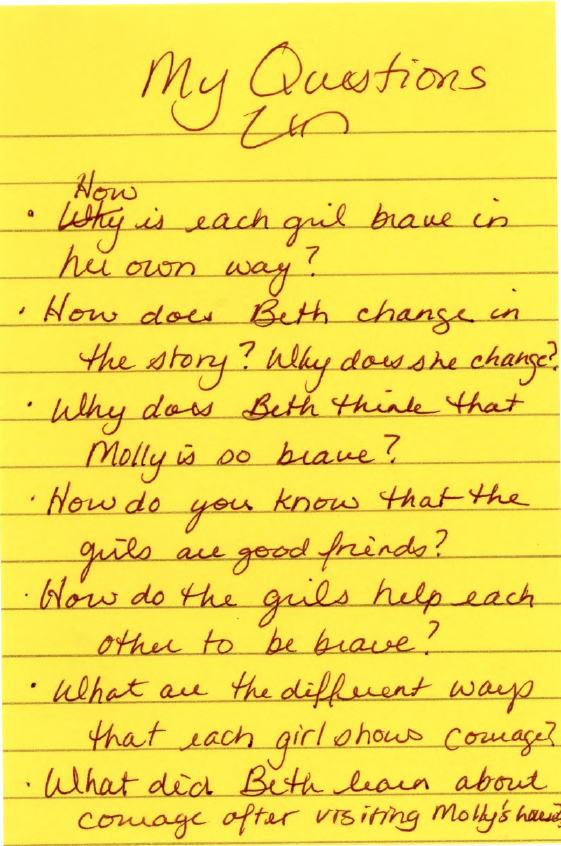 My Questions
How
· Why is each gril brave in
her own way?
· How does Beth change in
the story? Why does she change?
· Why does Beth think that
Molly is so brave?
· How do you know that the
girls are good friends?
· How do the girls help each
other to be brave?
· What are the different ways
that each girl shows courage?
· What did Beth learn about
courage after visiting Molly's house?